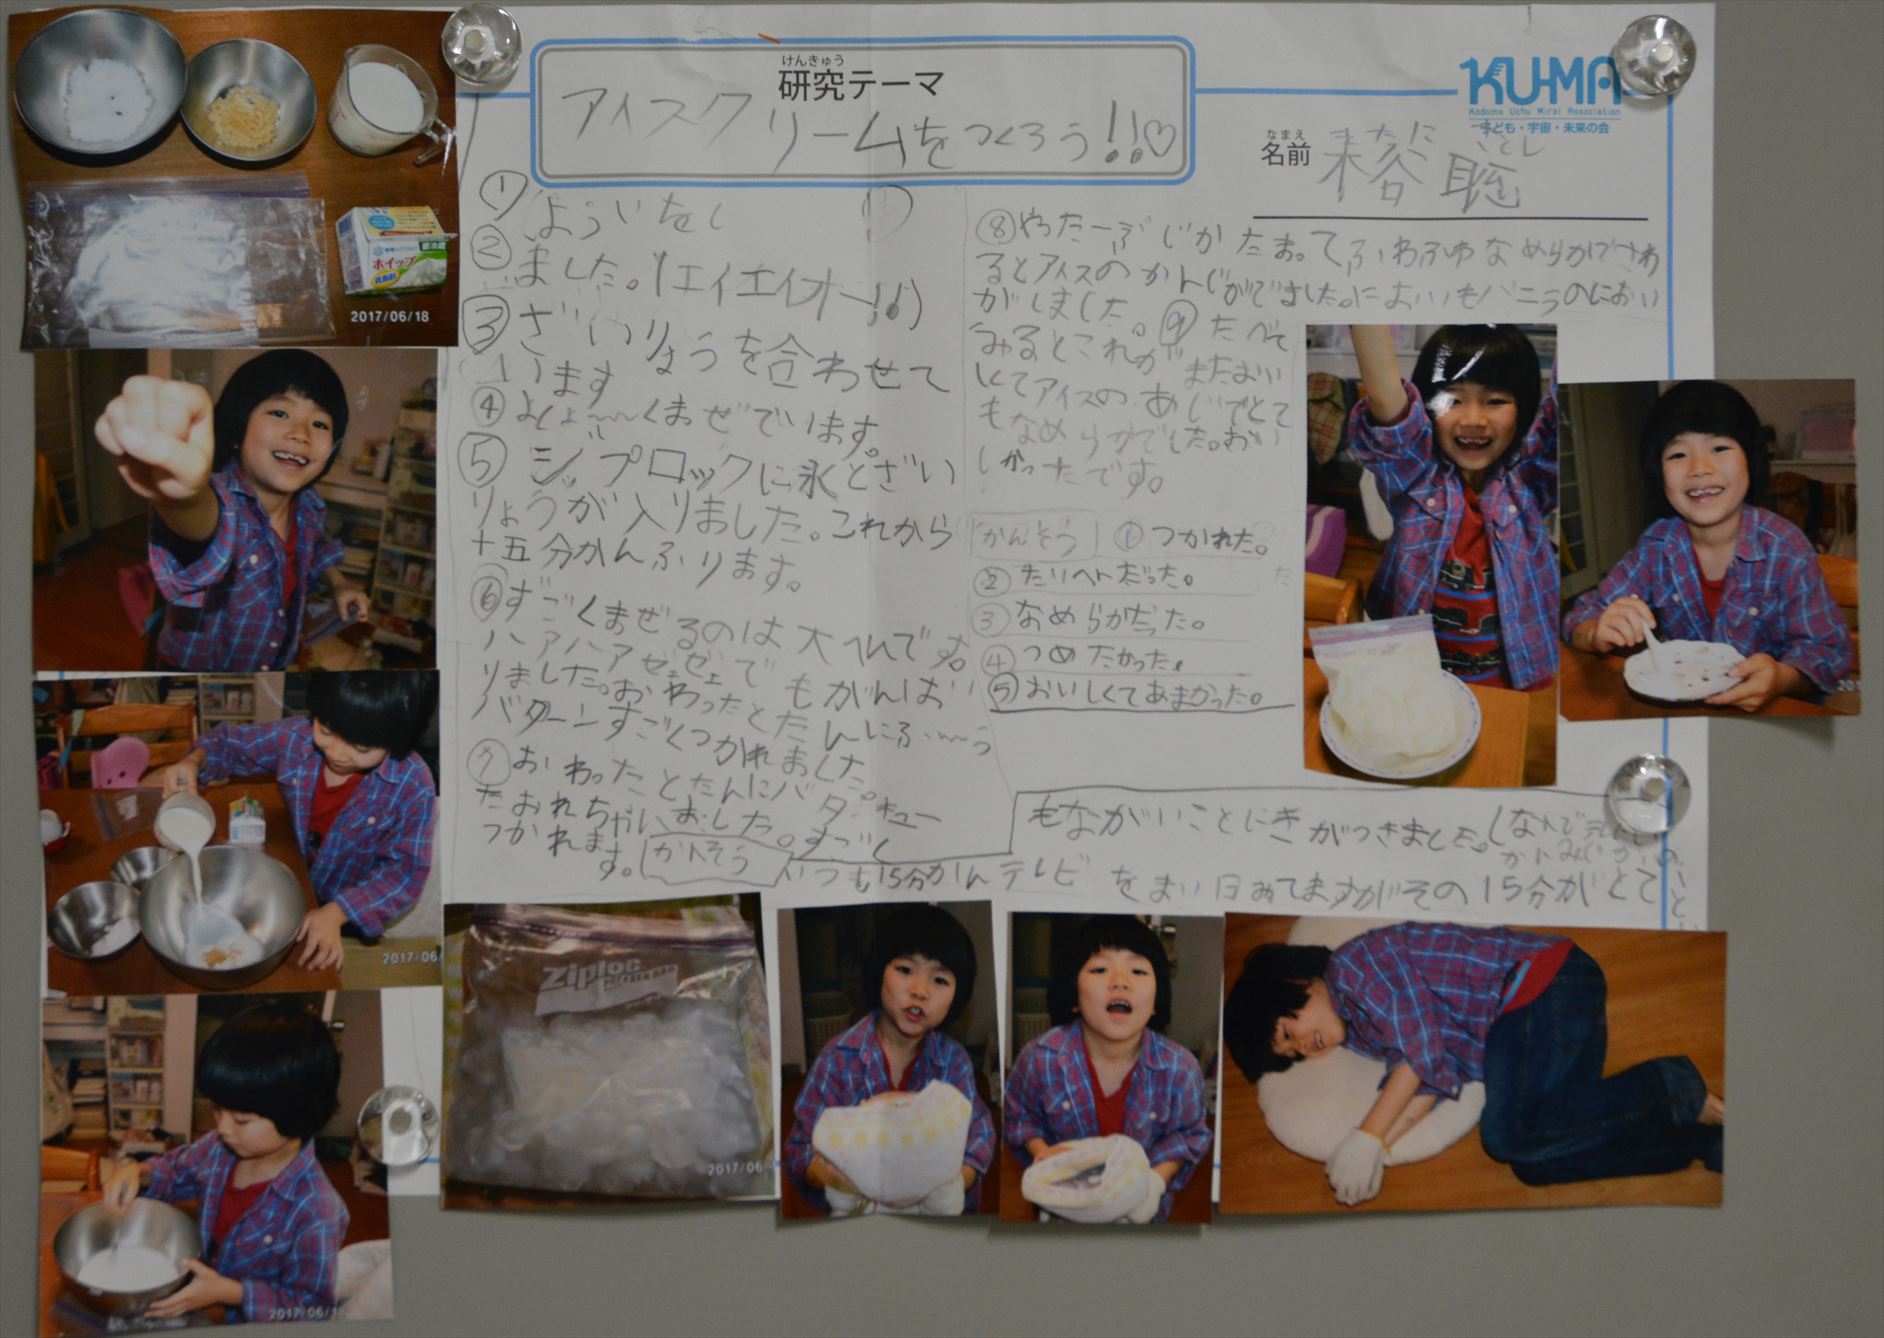 けんきゅう
研究テーマ
アイスクリームをつくろう!!♡
KU-MA
Kodomo Uchu Mirai Association
子ども・宇宙・未来の会
なまえ
名前
さとし
聡
①よういをし
②ました。(エイエイオー!!)
③ざいりょうを合わせて
います
④よくまぜています。
⑤ジップロックに氷とざい
りょうが入りました。これから
十五分かんふります。
⑥すごくまぜるのは大へんです。
ハアハアゼェゼェでもがんば
りました。おわったとたんにふ〜う
バターンすごくつかれました。
⑦おわったとたんにバタンキュー
たおれちゃいました。すごく
つかれます。
かんそう
いつも15分かんテレビをまい日みてますがその15分がとて
もながいことにきがつきました。
⑧やったーぶじかたまってふわふわなめらかでさわ
るとアイスのかんじがでました。においもバニラのにおい
がしました。⑨たべて
みるとこれがまたおい
しくてアイスのあじでとて
もなめらかでした。おい
しかったです。
かんそう ①つかれた。
②たいへんだった。
③なめらかだった。
④つめたかった。
⑤おいしくてあまかった。
ホイップ
2017/06/18
2017/06
2017/06/18
Ziploc
2017/06
201